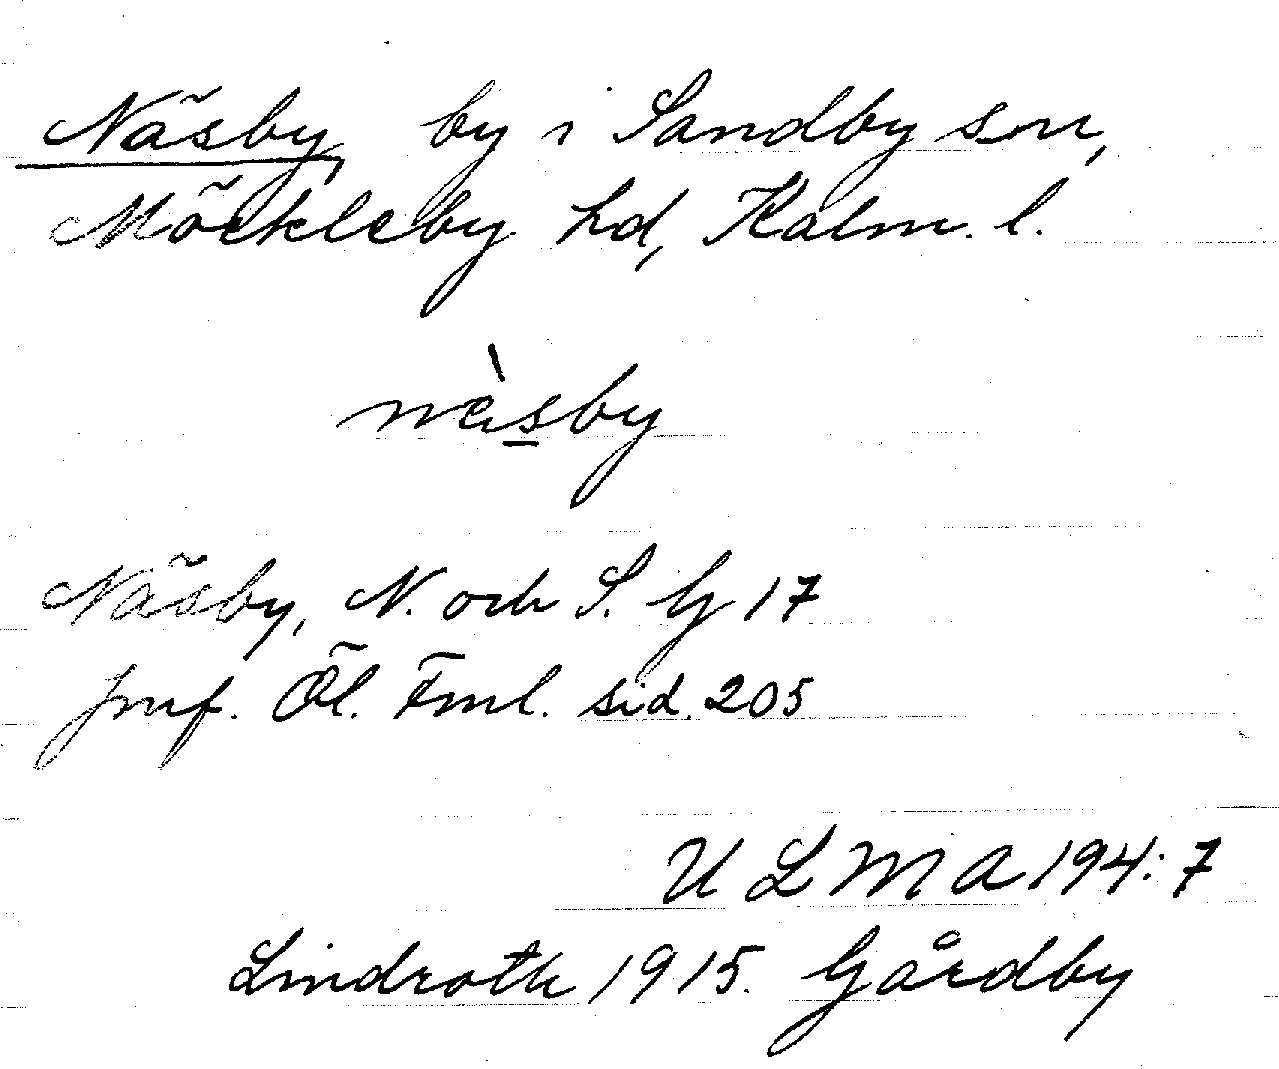 Näsby, by i Sandby sn,
Möckleby hd, Kalm. l.
nàsby
Näsby, N. och S. G 17
jmf. Öl. Fml. sid. 205
U L M A 194:7
Lindroth 1915. Gårdby